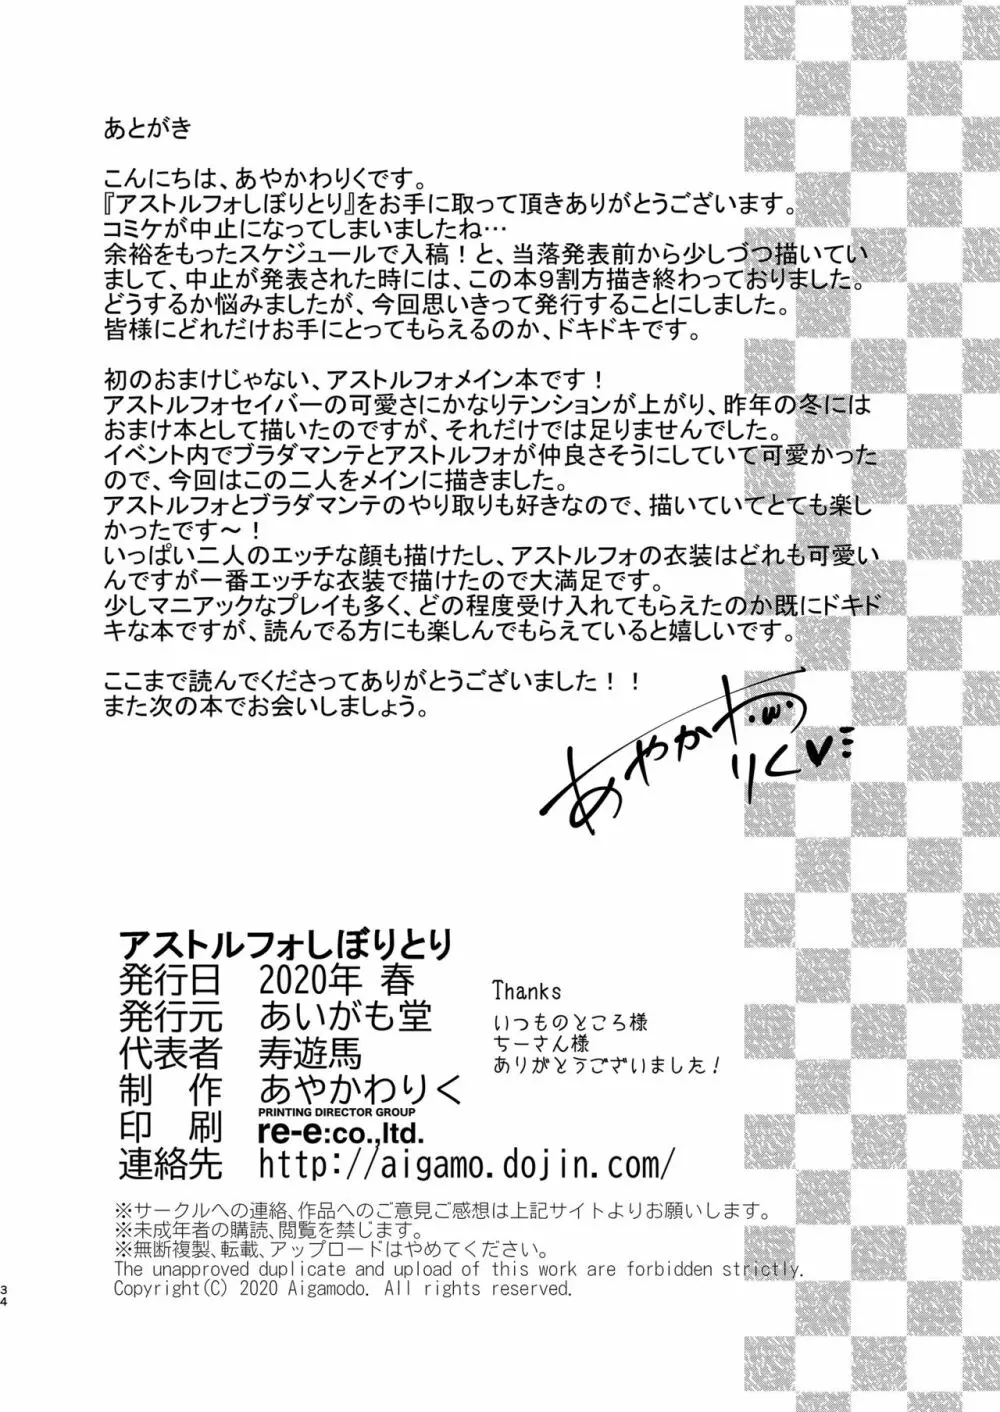 あとがき
こんにちは、あやかわりくです。
『アストルフォしぼりとり』をお手に取って頂きありがとうございます。
コミケが中止になってしまいましたね…
余裕をもったスケジュールで入稿！と、当落発表前から少しづつ描いてい
まして、中止が発表された時には、この本９割方描き終わっておりました。
どうするか悩みましたが、今回思いきって発行することにしました。
皆様にどれだけお手にとってもらえるのか、ドキドキです。
初のおまけじゃない、アストルフォメイン本です！
アストルフォセイバーの可愛さにかなりテンションが上がり、昨年の冬には
おまけ本として描いたのですが、それだけでは足りませんでした。
イベント内でブラダマンテとアストルフォが仲良さそうにしていて可愛かった
ので、今回はこの二人をメインに描きました。
アストルフォとブラダマンテのやり取りも好きなので、描いていてとても楽し
かったです～！
いっぱい二人のエッチな顔も描けたし、アストルフォの衣装はどれも可愛い
んですが一番エッチな衣装で描けたので大満足です。
少しマニアックなプレイも多く、どの程度受け入れてもらえたのか既にドキド
キな本ですが、読んでる方にも楽しんでもらえていると嬉しいです。
ここまで読んでくださってありがとうございました！！
また次の本でお会いしましょう。
あやかわ
りく♥
アストルフォしぼりとり
発行日 2020年 春
発行元 あいがも堂
代表者 寿遊馬
制　作 あやかわりく
PRINTING DIRECTOR GROUP
印　刷 re-e:co.,ltd.
連絡先 http://aigamo.dojin.com/
Thanks
いつものところ様
ちーさん様
ありがとうございました！
※サークルへの連絡、作品へのご意見ご感想は上記サイトよりお願いします。
※未成年者の購読、閲覧を禁じます。
※無断複製、転載、アップロードはやめてください。
The unapproved duplicate and upload of this work are forbidden strictly.
Copyright(C) 2020 Aigamodo. All rights reserved.
34